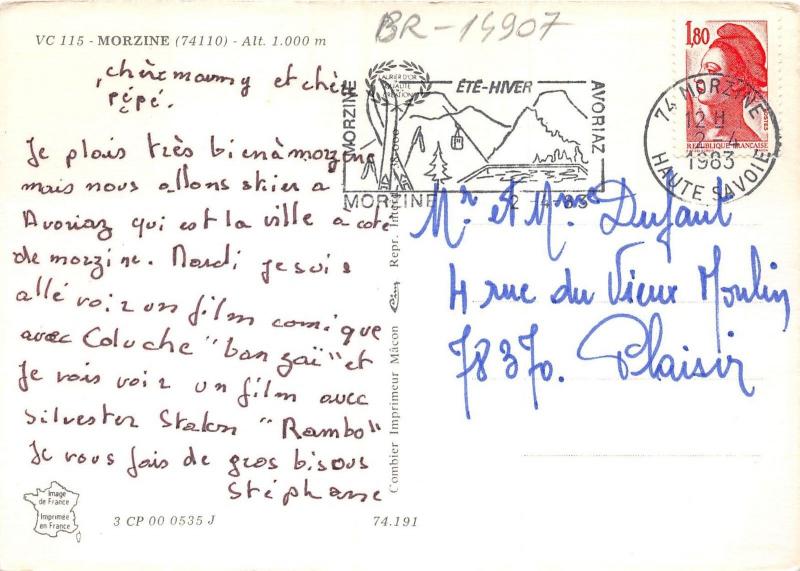 BR-14907
VC 115 - MORZINE (74110) - Alt. 1.000 m
chère mamy et chèr
pépé.
Je plais très bien à morzine
mais nous allons skier a
Avoriaz qui est la ville a coté
de morzine. Mardi je suis
allé voir un film comique
avec Coluche "banzaï" et
Je vais voir un film avec
Silvester Stalon "Rambo"
Je vous fais de gros bisous
Stéphane
Image
de France
Imprimée
en France
3 CP 00 0535 J
74.191
Combier Imprimeur Mâcon
Repr.
MORZINE
LAURIER D'OR
QUALITÉ
CRÉATION
ÉTÉ-HIVER
AVORIAZ
MORZINE
2 -4-83
1,80
POSTES
REPUBLIQUE FRANÇAISE
74 MORZINE
12 H
2-4
1983
HAUTE SAVOIE
Mr et Mme Dufaut
4 rue du Vieux Moulin
78370. Plaisir